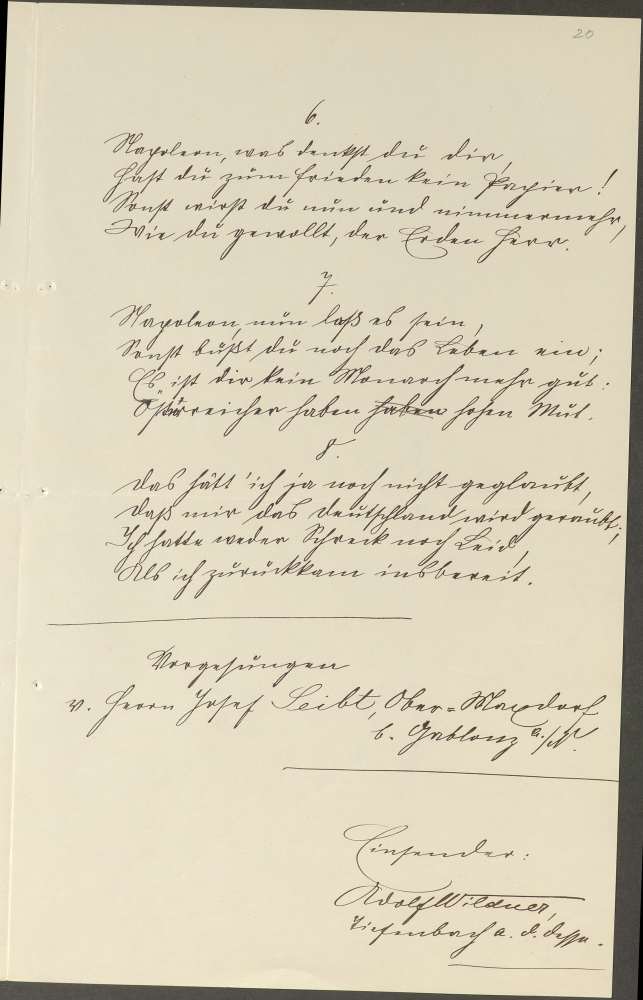 20
6.
Napoleon, was denkst du dir,
Hast du zum Frieden kein Papier!
Sonst wirst du nun und nimmermehr,
Wie du gewollt, der Erden Herr.
7.
Napoleon, nun laß es sein,
Sonst bußt du noch das Leben ein;
Es ist dir kein Monarch mehr gut:
Österreicher haben haben hohen Mut.
8.
Das hätt' ich ja noch nicht geglaubt,
Daß mir das Deutschland wird geraubt;
Ich hatte weder Schreck noch Leid,
Als ich zurückkam
Vorgesungen
v. Herrn Josef Seibt, Ober-Maxdorf
b. Gablonz a./N.
Einsender:
Adolf Wildner,
Tiefenbach a. d. Desse.